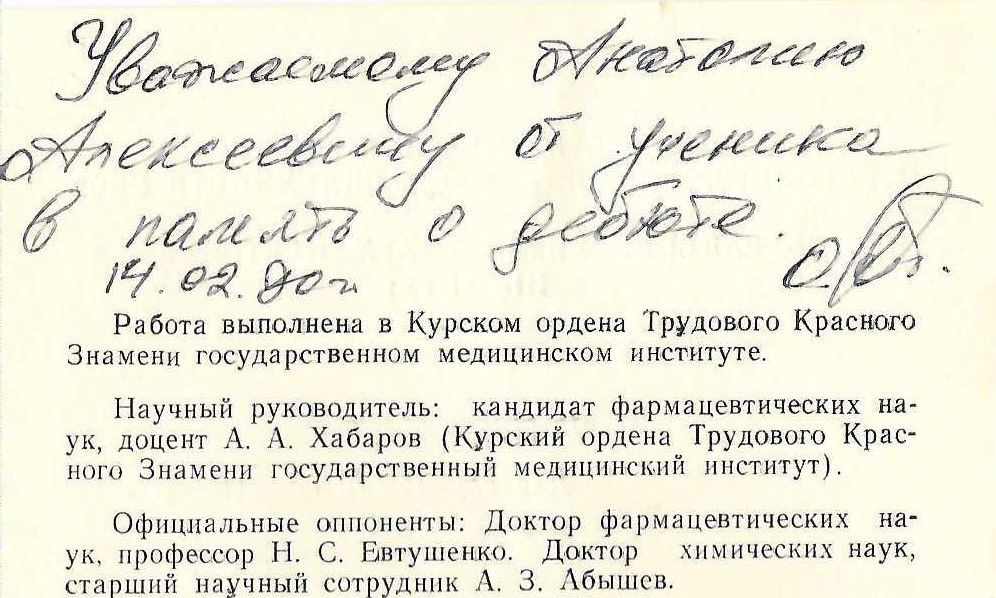 Уважаемому Анатолию
Алексеевичу от ученика
в память о дебюте.
14.02.90г.
Работа выполнена в Курском ордена Трудового Красного
Знамени государственном медицинском институте.
Научный руководитель: кандидат фармацевтических на-
ук, доцент А. А. Хабаров (Курский ордена Трудового Крас-
ного Знамени государственный медицинский институт).
Официальные оппоненты: Доктор фармацевтических на-
ук, профессор Н. С. Евтушенко. Доктор химических наук,
старший научный сотрудник А. З. Абышев.